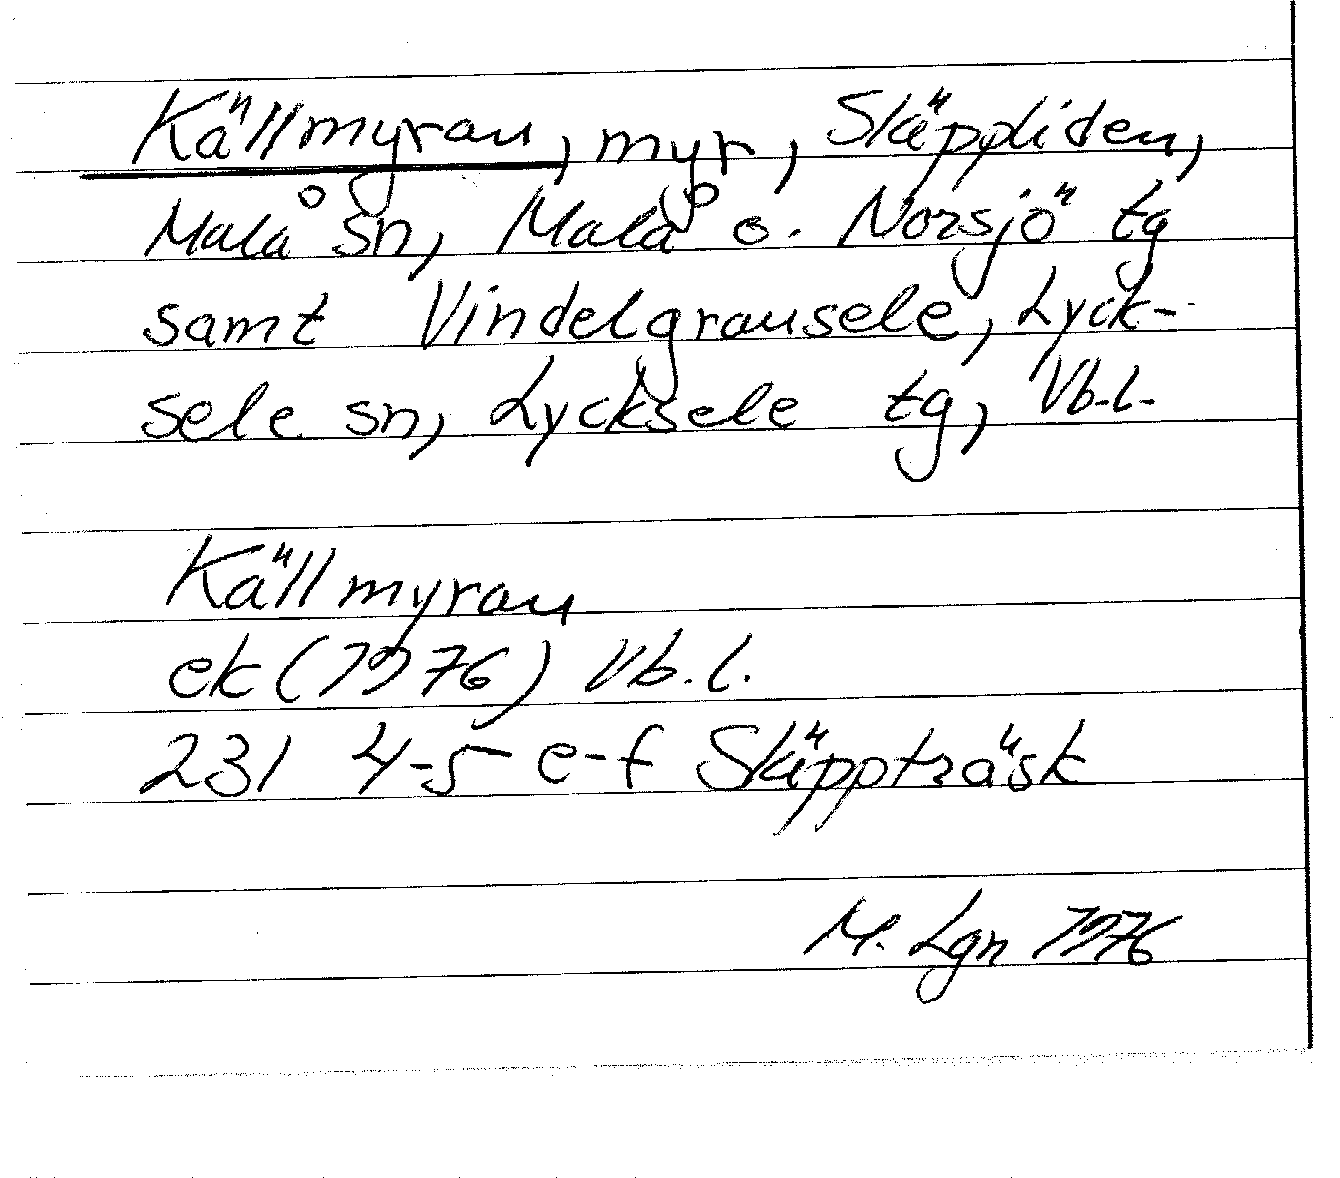 Källmyran, myr, Skäppliden,
Malå sn, Malå o. Norsjö tg
samt Vindelgransele, Lyck-
sele sn, Lycksele tg, Vb.l.
Källmyran
ek (1976) Vb.l.
231 4-5 e-f Skäppträsk
M. Lgn 1976